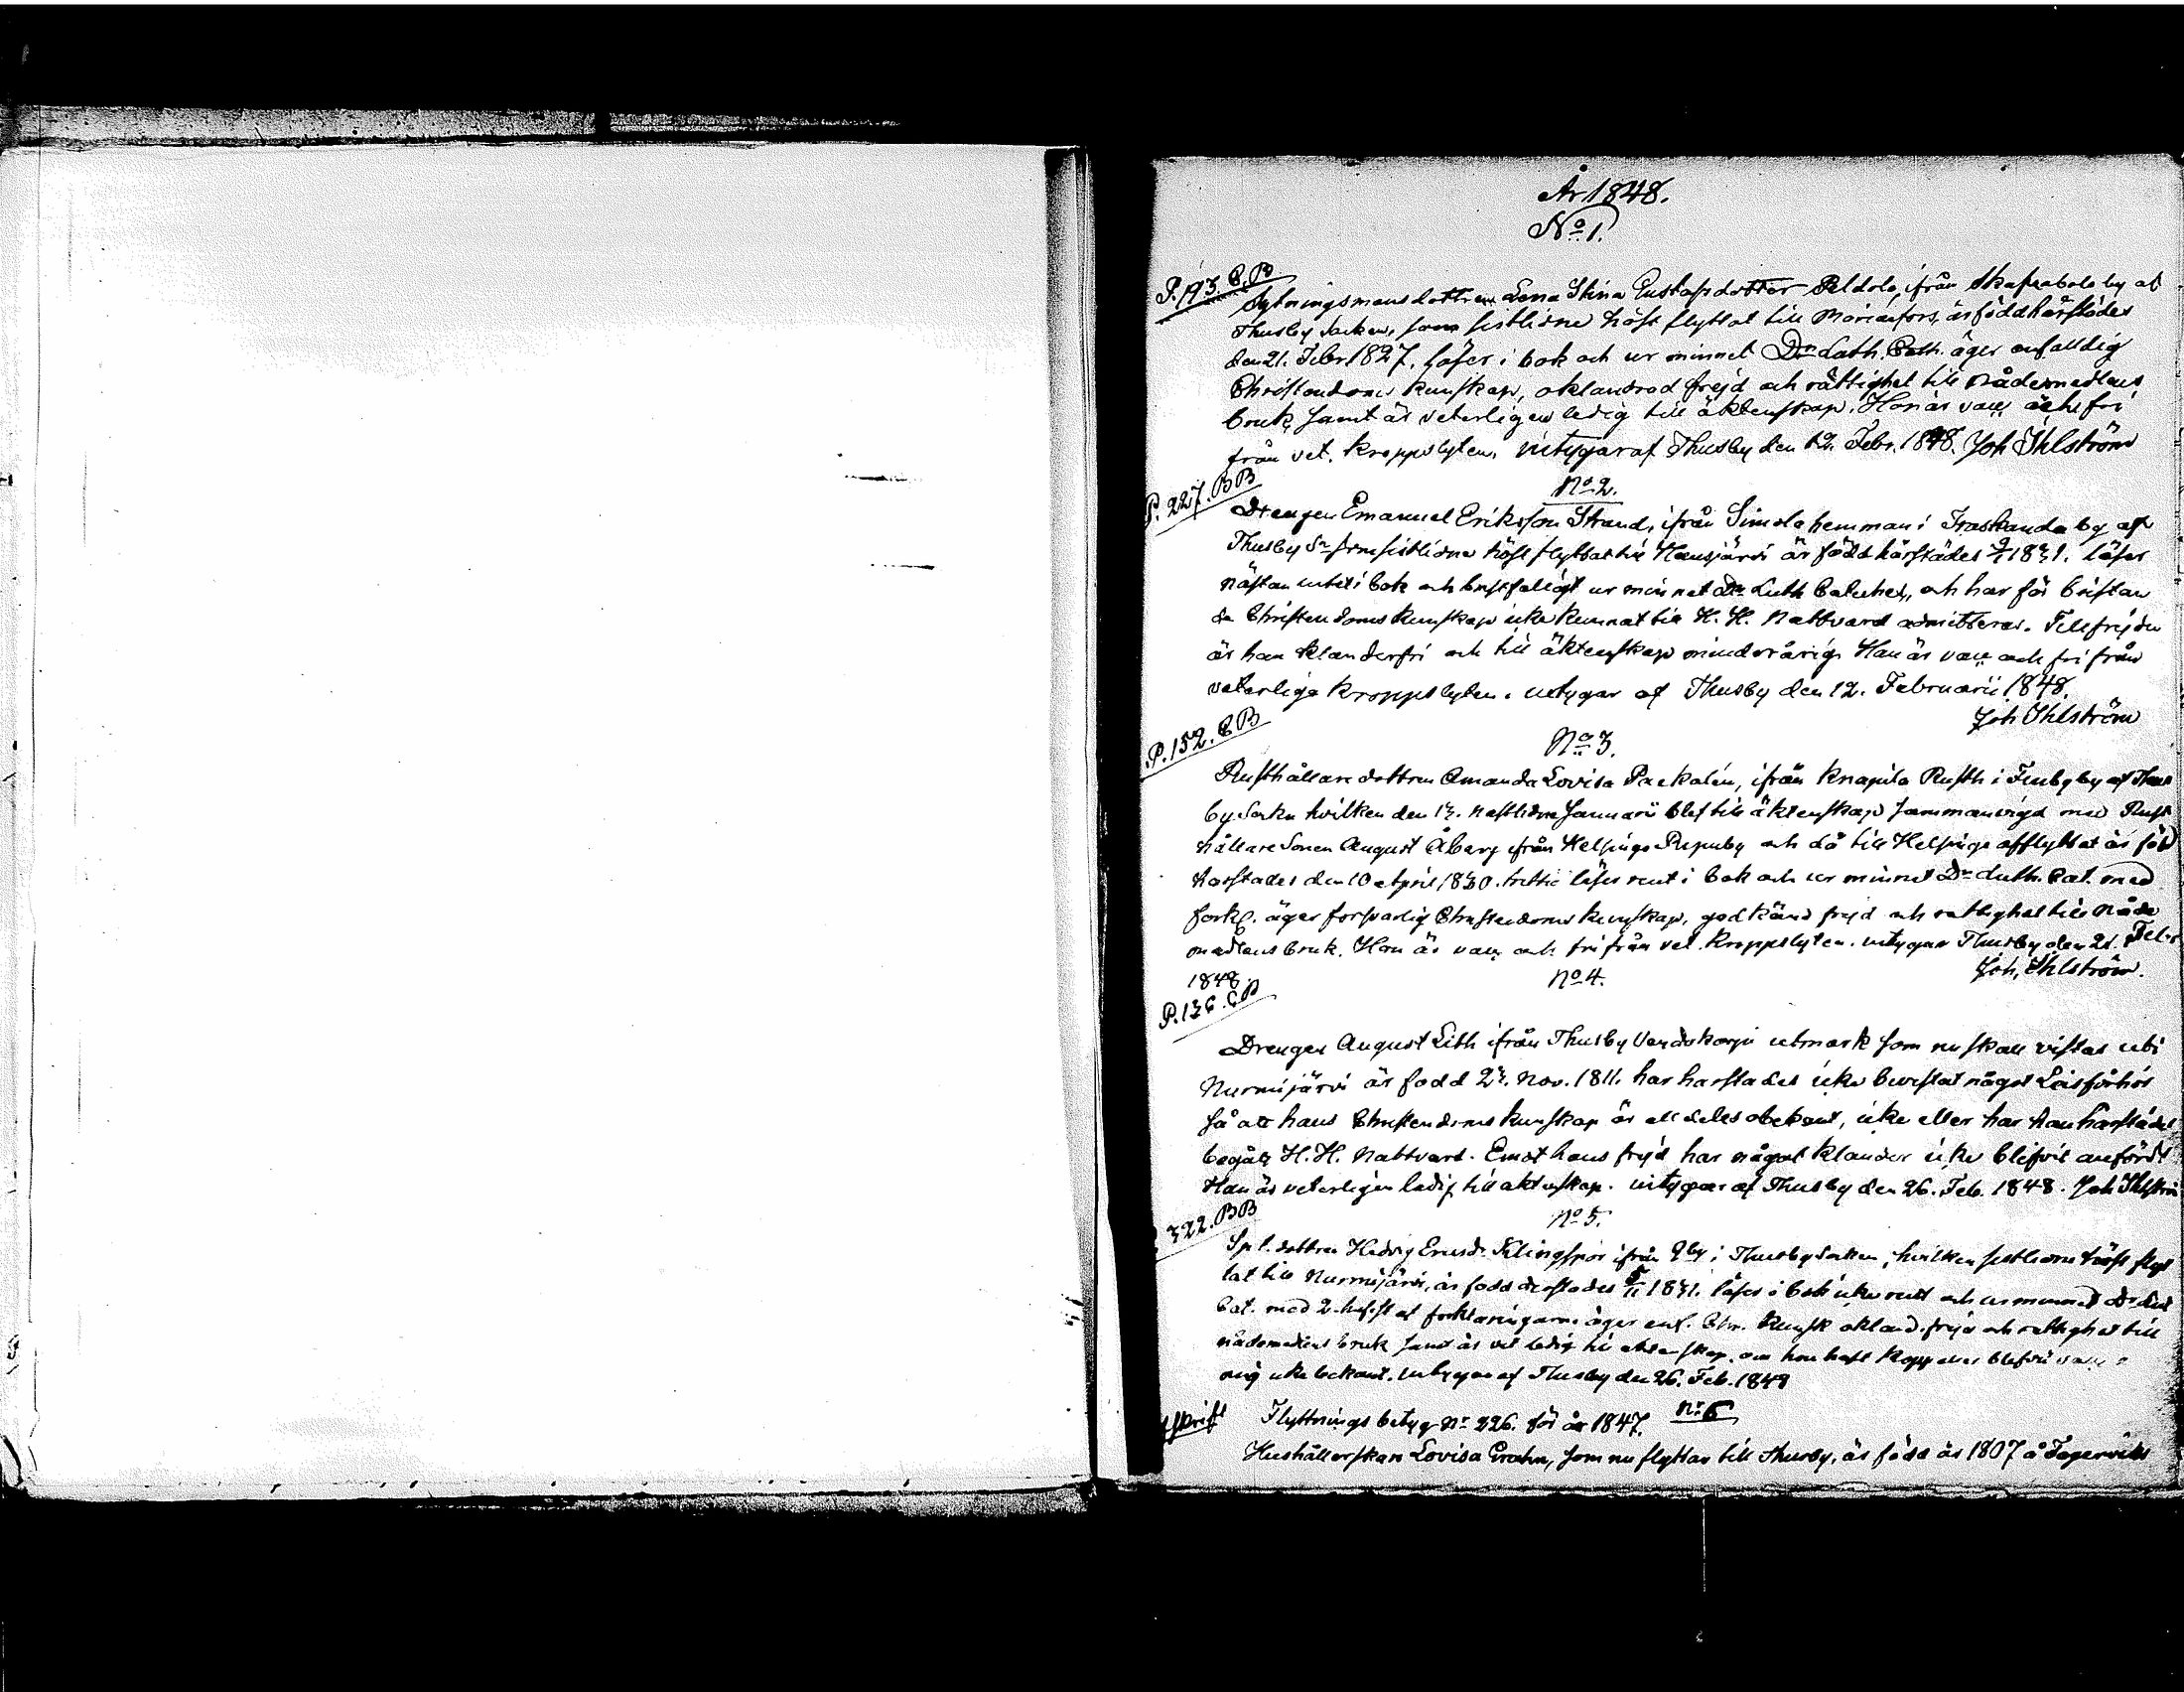 År 1848.
No 1.
P. 193. C.B
Sytningsmansdottren Lena Stina Gustafsdotter Peldola, ifrån Skafrabole by af
Thusby Socken, som sistlidne höst flyttat till Mariæfors, är född härstädes
den 21. Febr 1827, läser i bok och ur minnet Dr Luth. Cath. äger enfalldig
Christendoms kunskap, oklandrad frejd och rättighet till nådemedlens
bruk, samt är veterligen ledig till äktenskap. Hon är vacc. och fri
från vet. kroppslyten, intygar af Thusby den 12. Febr. 1848. Joh Ihlström
P. 227. BB
No 2.
Drengen Emanuel Eriksson Strand, ifrån Simola hemman i Träskända by af
Thusby Sn som sistlidne höst flyttat till Hausjärvi är född härstädes 1831. läser
nästan uteti bok och bristfäligt ur minnet Dr Luth Cateches, och har för bristan
de Christendoms kunskap icke kunnat till H. H. Nattvard admitteras. Till frejden
är han klanderfri och till äktenskap minderårig. Han är vacc och fri från
veterliga kroppslyten. intygar af Thusby den 12. Februarii 1848.
Joh Ihlström
P. 152. CB
No 3.
Rusthållare dottren Amanda Lovisa Packalén, ifrån Knapila Rusth i Finby by af Thus
by Sockn hvilken den 13. nästlidne Januarii blef till äktenskap sammanvigd med Rust
hållare Sonen August Åberg ifrån Helsinge Ripuby och då till Helsinge afflyttat är föd
härstädes den 10 April 1830. trettio läser rent i bok och ur minnet Dr Luth. Cat. med
förkl. äger försvarlig Christendoms kunskap, god känd frejd och rättighet till Nåde
medlens bruk. Hon är vacc och fri från vet. kroppslyten. intygar Thusby den 21. Febr
1848.
Joh, Ihlström.
No 4.
P. 136. CB
Drengen August Lith ifrån Thusby Vendskarju utmark som nu skall vistas uti
Nurmijärvi är född 23. Nov. 1811. har härstädes icke bevistat något Läsförhör
så att hans Christendoms kunskap är alldeles obekant, icke eller har han härstädes
begått H. H. Nattvard. Emot hans frejd har något klander icke blifvit anfördt
Han är veterligen ledig till äktenskap. intygar af Thusby den 26. Feb. 1848. Joh Ihlström
322. BB
No 5.
Sp l. dottren Hedvig Ericsdr Klingspor ifrån by i Thusby Socken, hvilken sistlidne höst flyt
tat till Nurmijärvi, är född derstädes 1831. läser i bok icke rent och ur minnet Dr Lut
Cat. med 2. hufst af förklaringarne äger enf. Chr. kunsk okland. frejd och rättighet till
nådemedlens bruk samt är vet ledig till äktenskap, om hon haft kopp eller blifvit vacc
mig icke bekant. intygar af Thusby den 26. Feb. 1848
No 6
Flyttnings betyg No 226. för år 1847.
Hushållerskan Lovisa Grahn, som nu flyttar till Thusby, är född år 1807 å Fagerviks